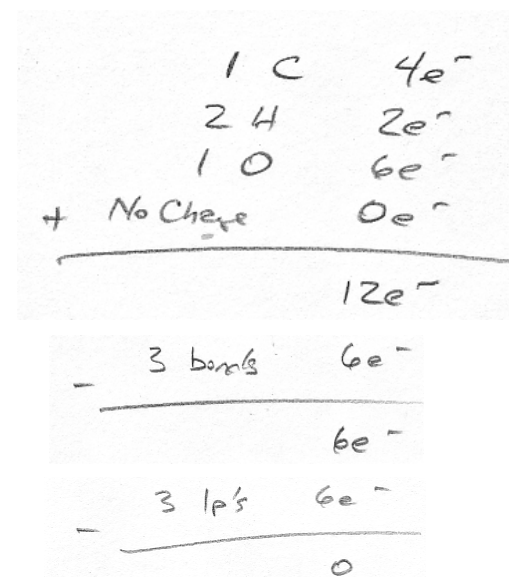 1 C 4e⁻
2 H 2e⁻
1 O 6e⁻
+ No Charge 0e⁻
12e⁻
- 3 bonds 6e⁻
6e⁻
- 3 lp's 6e⁻
0